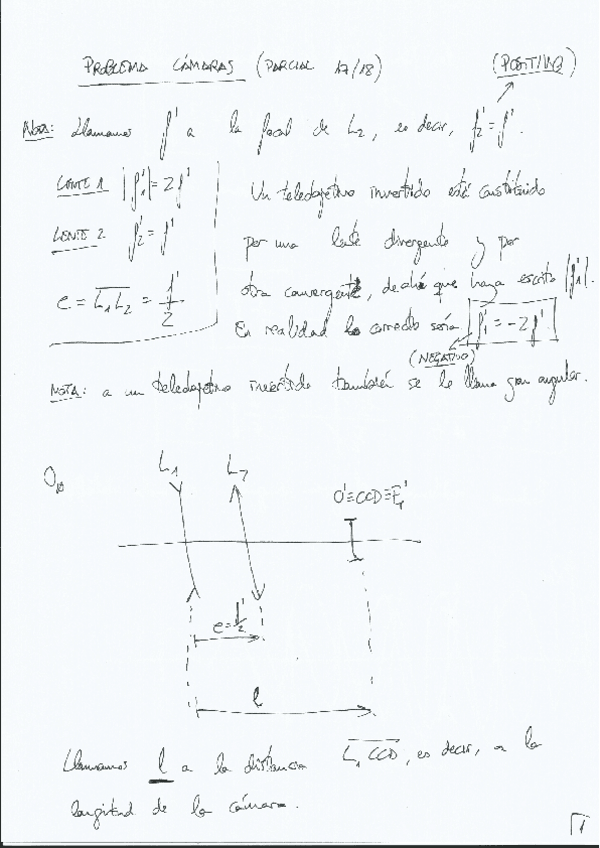 PROBLEMA CÁMARAS (PARCIAL 17/18)
(POSITIVA)
Nota: Llamamos f' a la focal de L₂, es decir, f₂' = f'.
LENTE 1 |f₁'| = 2f'
LENTE 2 f₂' = f'
e = L₁L₂ = f'/2
Un teleobjetivo invertido está constituido
por una lente divergente y por
otra convergente, de ahí que haya escrito |f₁'|.
En realidad lo correcto sería f₁' = -2f'
(NEGATIVO)
NOTA: a un teleobjetivo invertido también se le llama gran angular.
O∞
L₁
L₂
O'≡CCD≡F_T'
e = f'/2
l
Llamamos l a la distancia L₁CCD, es decir, a la
longitud de la cámara.
1